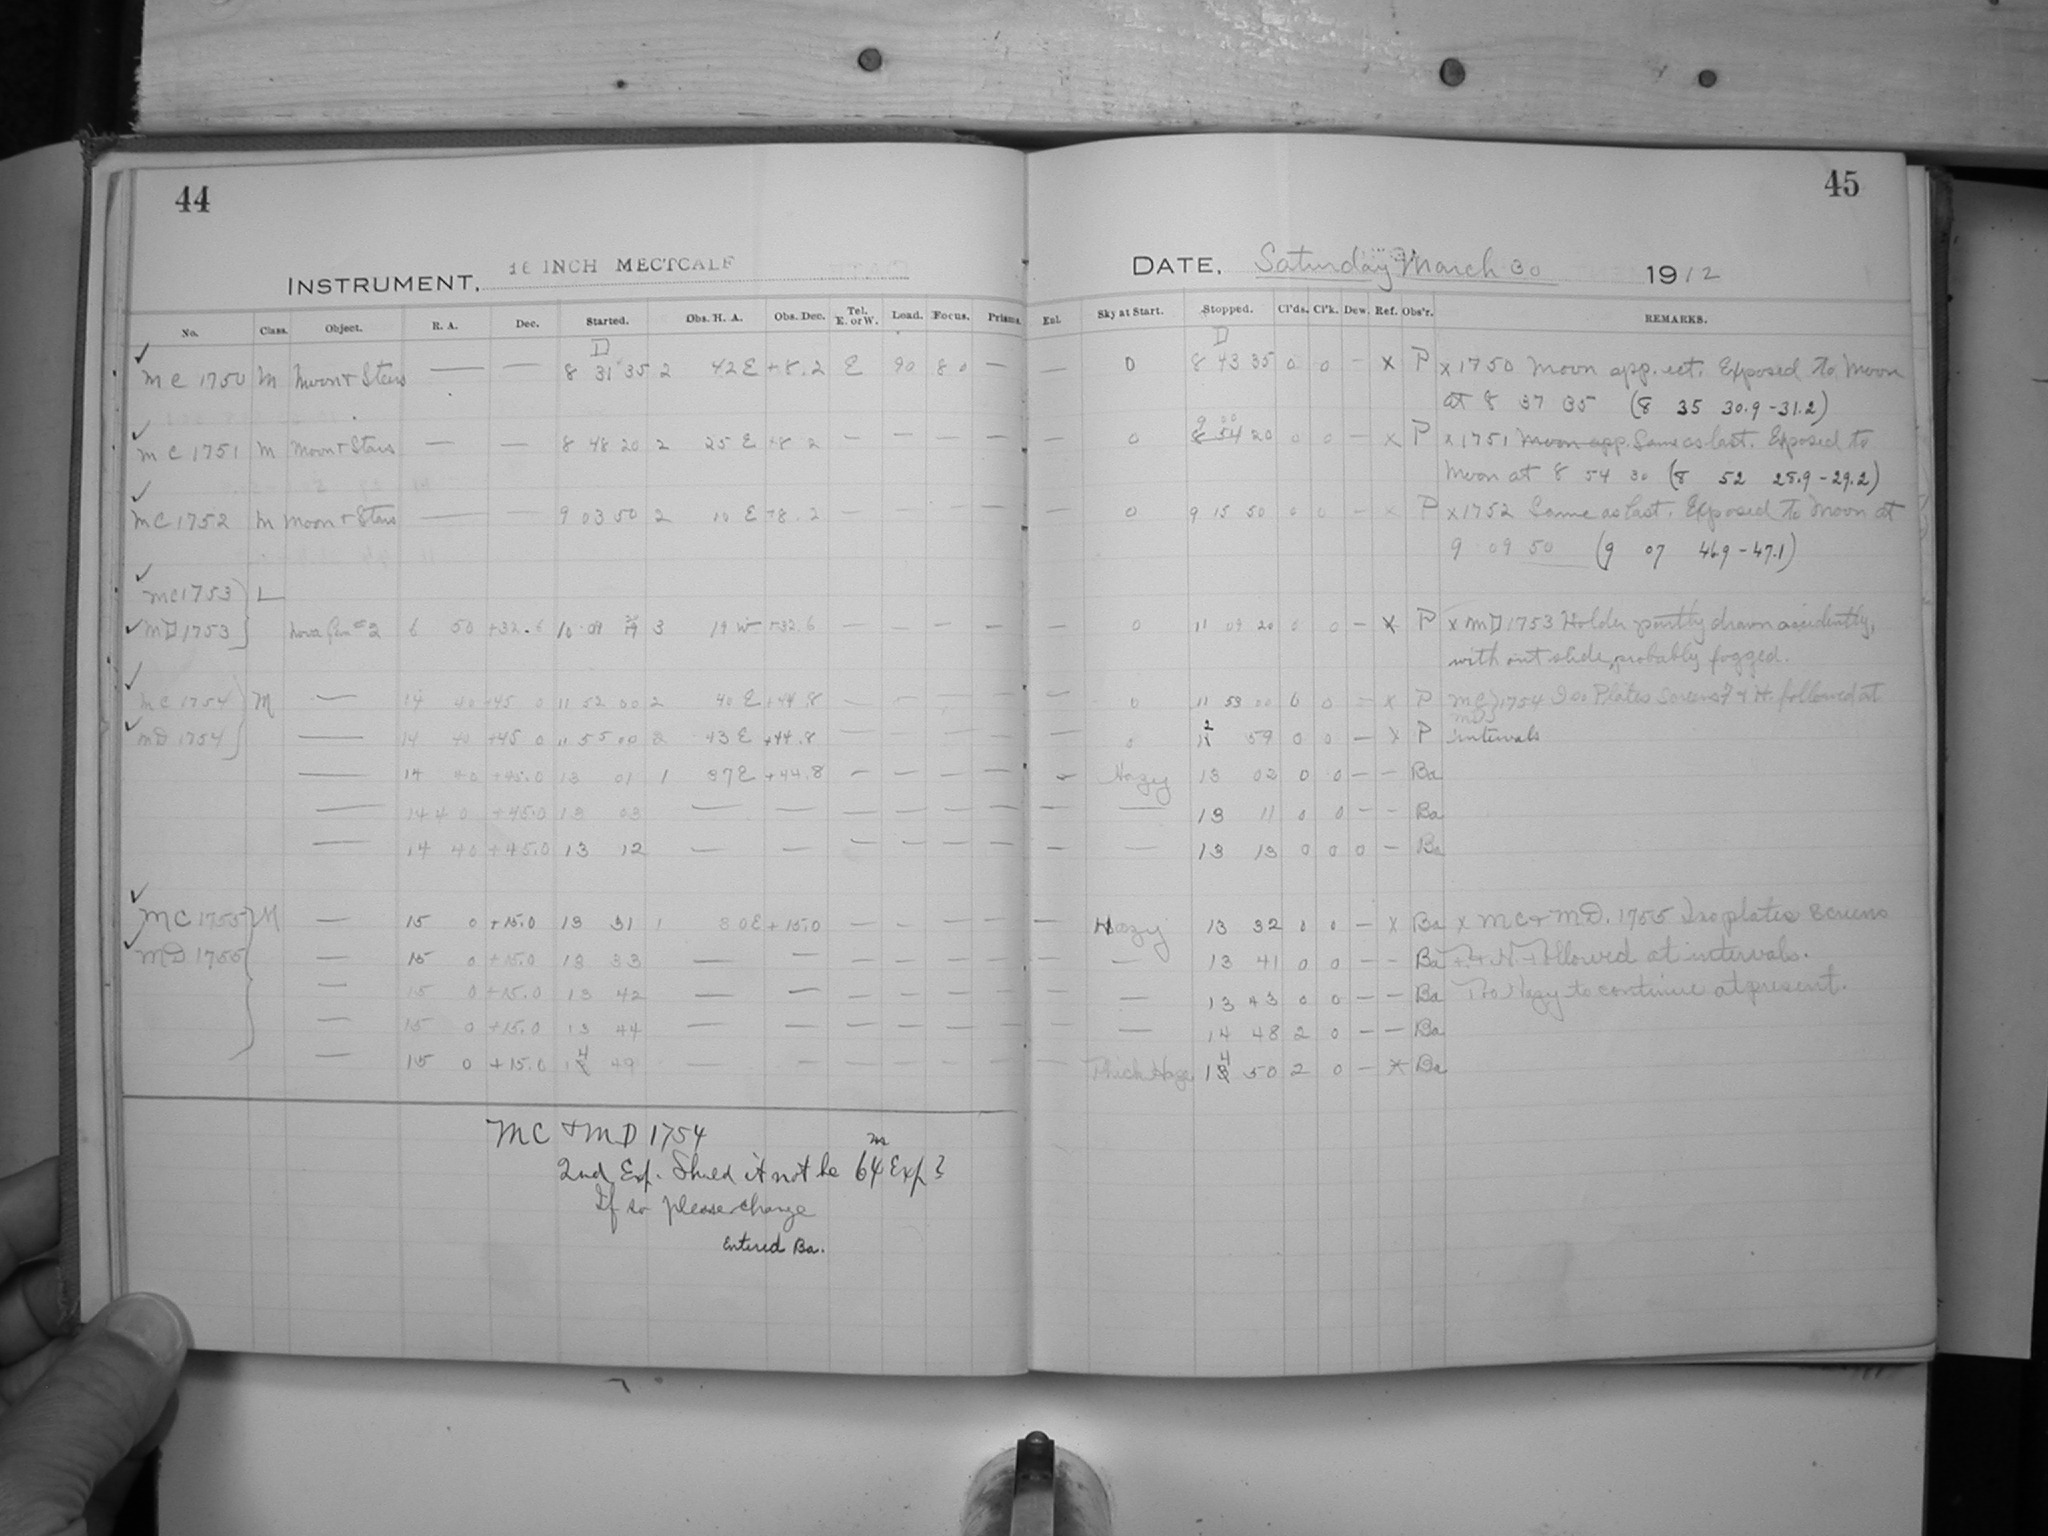 44
45
INSTRUMENT, 16 INCH METCALF
DATE, Saturday March 30 1912
No. Class. Object. R. A. Dec. Started. Obs. H. A. Obs. Dec. Tel. E. or W. Load. Focus. Prisms. Enl. Sky at Start. Stopped. Cl'ds. Cl'k. Dew. Ref. Obs'r. REMARKS.
D D
✓ MC 1750 M Moon + Stars — — 8 31 35 2 42 E +8.2 E 90 8 0 — — 0 8 43 35 0 0 - x P x 1750 Moon app. ect. Exposed to Moon
at 8 37 35 (8 35 30.9-31.2)
✓ MC 1751 M Moon + Stars — — 8 48 20 2 25 E +8 2 — — — — — 0 9 00 20 0 0 — x P x 1751 Moon app. Same as last. Exposed to
Moon at 8 54 30 (8 52 28.9-29.2)
✓ MC 1752 M Moon + Stars — — 9 03 50 2 10 E +8.2 — — — — — 0 9 15 50 0 0 - x P x 1752 Same as last. Exposed to Moon at
9 09 50 (9 07 46.9-47.1)
✓ MC 1753 L
✓ MD 1753 Nova Gem #2 6 50 +32.6 10 09 3 19 W +32.6 — — — — — 0 11 09 20 0 0 — x P x MD 1753 Holder partly drawn accidently,
without slide, probably fogged.
✓ MC 1754 M — 14 40 +45 0 11 52 00 2 40 E +44.8 — — — — — 0 11 53 00 0 0 - x P MC MD 1754 Iso Plates Screens F + H. followed at
✓ MD 1754 — 14 40 +45 0 11 55 00 2 43 E +44.8 — — — — — 0 12 59 0 0 — x P intervals
— 14 40 +45.0 13 01 1 37 E +44.8 — — — — — Hazy 13 02 0 0 — - Ba
— 14 40 +45.0 13 03 — — — — — — — — 13 11 0 0 - - Ba
— 14 40 +45.0 13 12 — — — — — — — — 13 13 0 0 0 - Ba
✓ MC 1755 M — 15 0 +15.0 13 31 1 30 E +15.0 — — — — Hazy 13 32 0 0 — x Ba x MC + MD. 1755 Iso plates Screens
✓ MD 1755 — 15 0 +15.0 13 33 — — — — — — — — 13 41 0 0 — - Ba F. + H. Followed at intervals.
— 15 0 +15.0 13 42 — — — — — — — — 13 43 0 0 — — Ba Too Hazy to continue at present.
— 15 0 +15.0 13 44 — — — — — — — — 14 48 2 0 — — Ba
— 15 0 +15.0 14 49 — — — — — — — Thick Haze 14 50 2 0 — x Ba
MC + MD 1754
2nd Exp. Should it not be 64m Exp?
If so please change
Entered Ba.